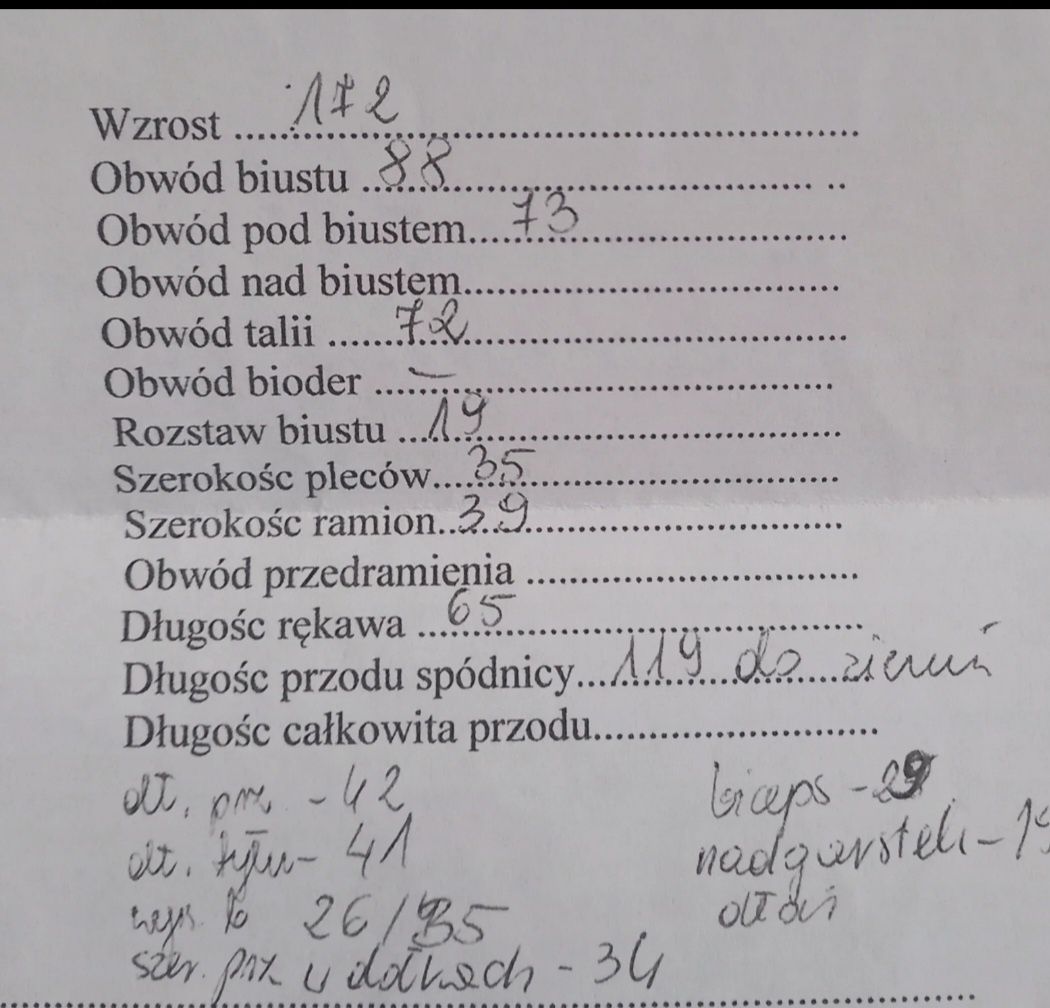 Wzrost ..... 172 .....
Obwód biustu ... 88 .....
Obwód pod biustem.... 73 .....
Obwód nad biustem.....
Obwód talii ..... 72 .....
Obwód bioder .... – .....
Rozstaw biustu ... 19 .....
Szerokośc pleców.... 35 .....
Szerokośc ramion.. 39 .....
Obwód przedramienia .....
Długośc rękawa ... 65 .....
Długośc przodu spódnicy... 119 do ziemi
Długośc całkowita przodu.....
dł. prz. - 42 biceps - 29
dł. tyłu - 41 nadgarstek -
26/35 dłoni
szer. prz. w dołkach - 34